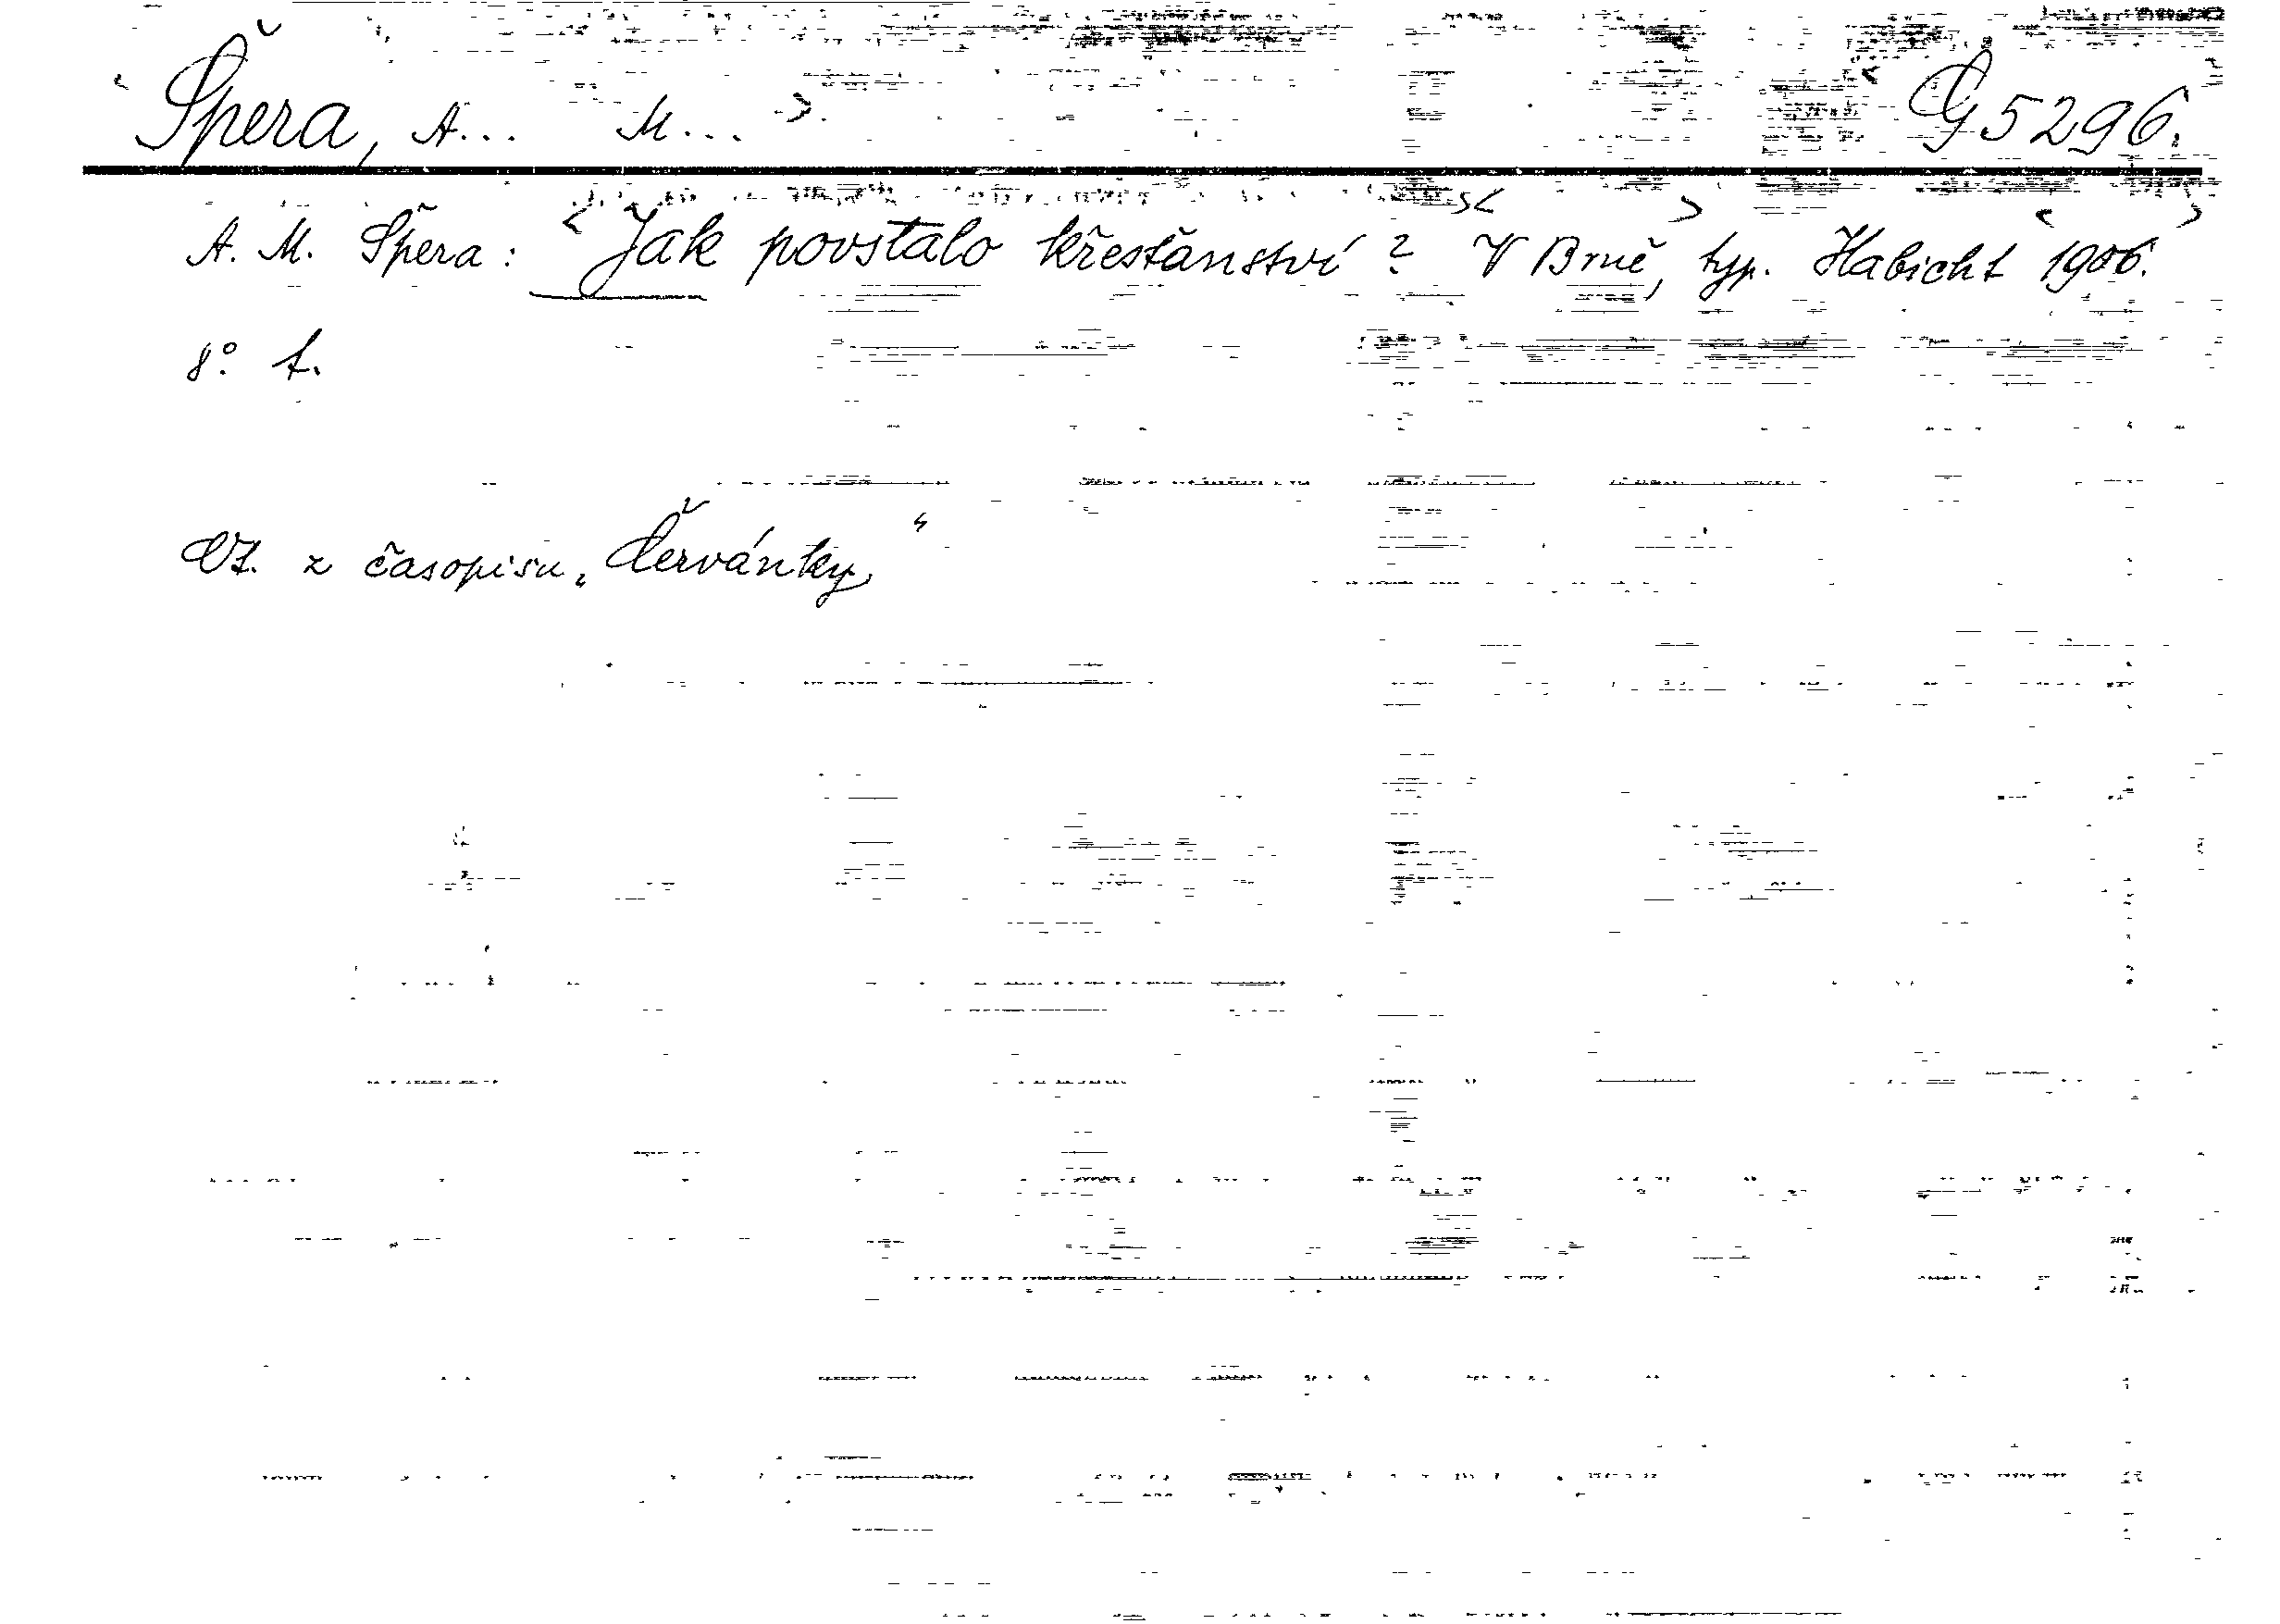 Špera, A... M... G 5296.
A. M. Špera: Jak povstalo křesťanství? V Brně, typ. Habicht 1906.
8° f.
Ot. z časopisu „Červánky"